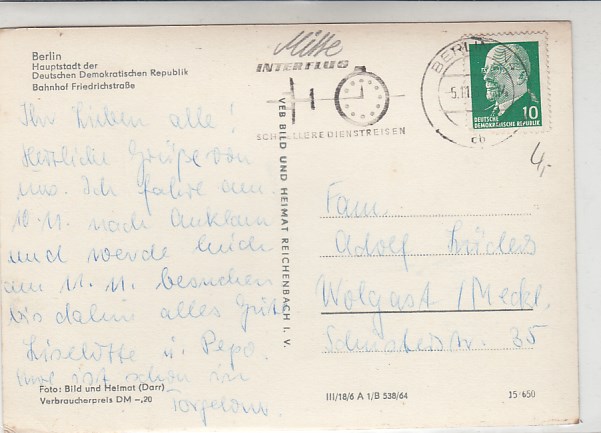 Berlin
Hauptstadt der
Deutschen Demokratischen Republik
Bahnhof Friedrichstraße
Mitte
INTERFLUG
SCHNELLERE DIENSTREISEN
BERLIN
5.11
cb
DEUTSCHE
DEMOKRATISCHE REPUBLIK
10
4,-
Ihr Lieben alle!
Herzliche Grüße von
uns. Ich fahre am
10.11. nach Anklam
und werde Euch
am 11.11. besuchen
bis dahin alles Gute
Liselotte u. Pepo.
ist schon in
Torgelow
VEB BILD UND HEIMAT REICHENBACH I. V.
Fam.
Adolf Lüders
Wolgast / Meckl.
Schusterstr. 35
Foto: Bild und Heimat (Darr)
Verbraucherpreis DM -,20
III/18/6 A 1/B 538/64
15·650